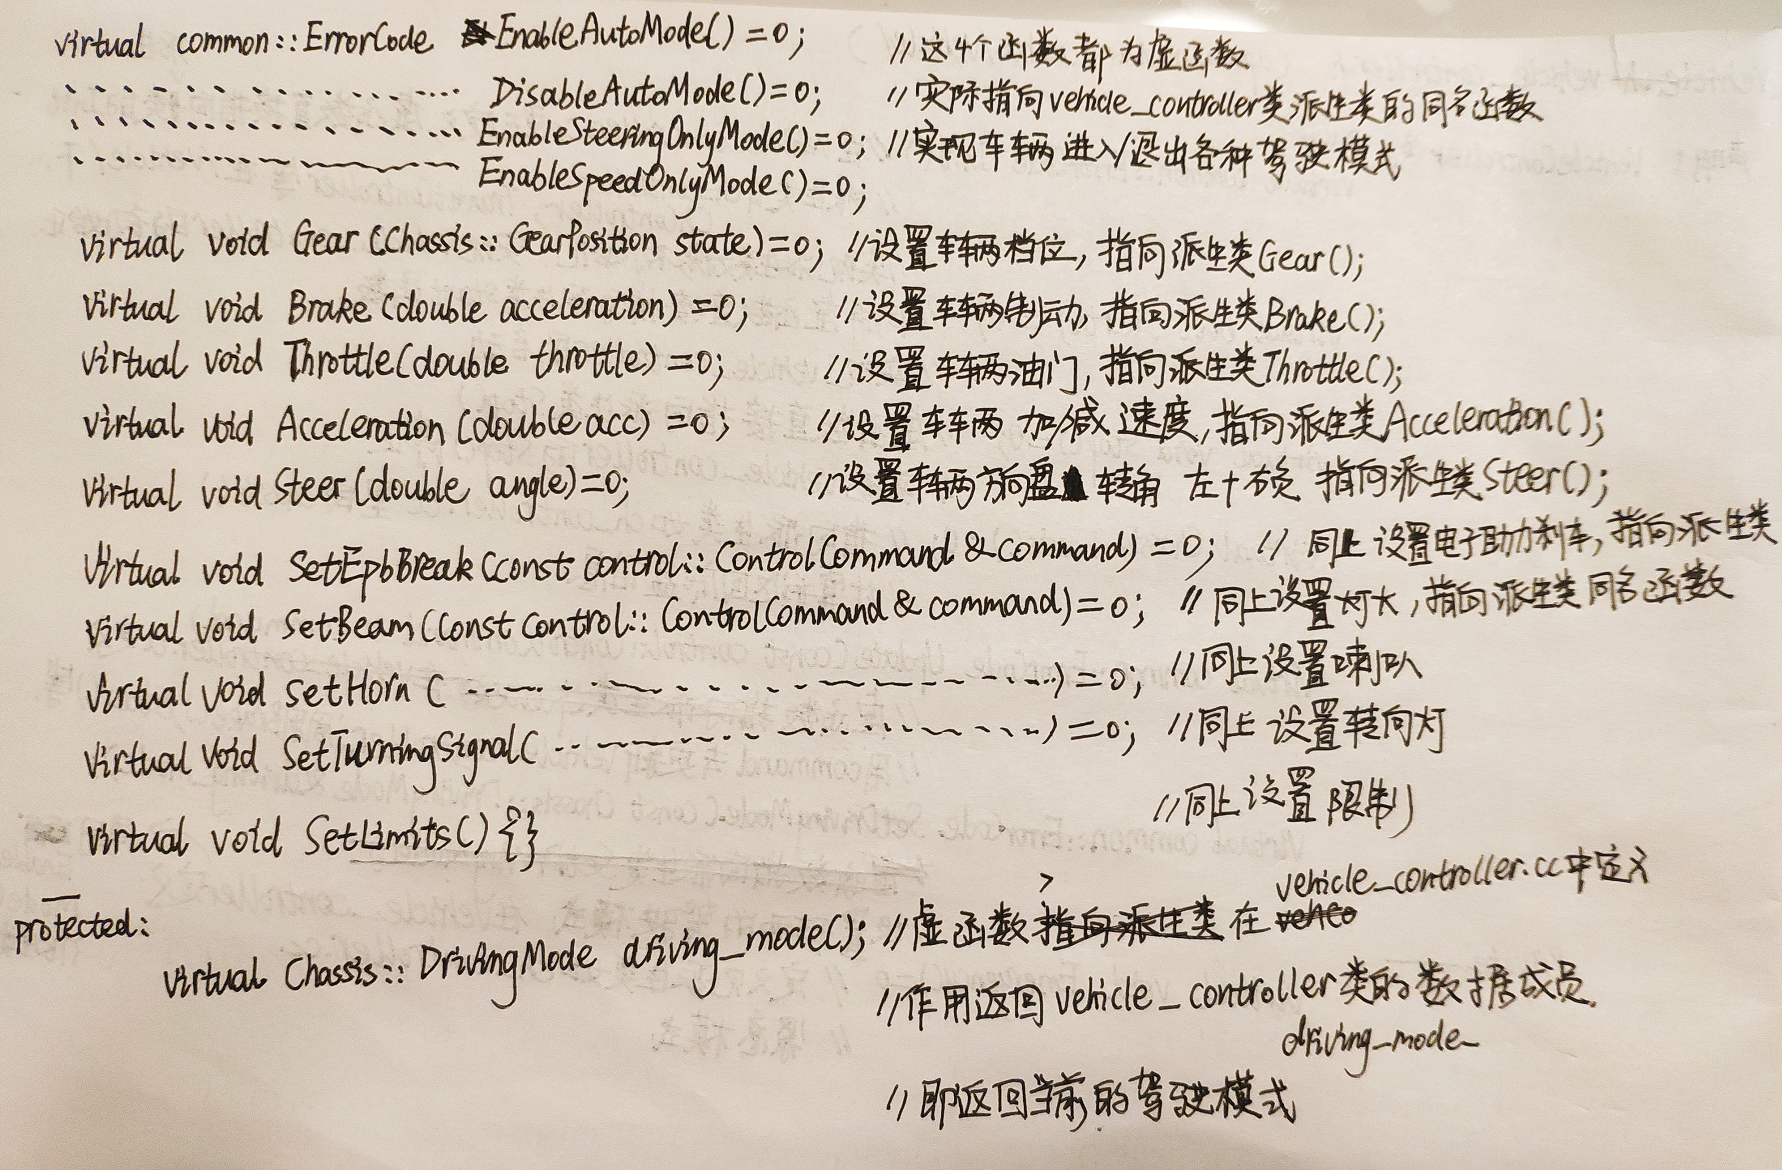 virtual common::ErrorCode EnableAutoMode()=0; //这4个函数都为虚函数
DisableAutoMode()=0; //实际指向vehicle_controller类派生类的同名函数
EnableSteeringOnlyMode()=0; //实现车辆进入/退出各种驾驶模式
EnableSpeedOnlyMode()=0;
virtual void Gear(Chassis::GearPosition state)=0; //设置车辆档位,指向派生类Gear();
virtual void Brake(double acceleration)=0; //设置车辆制动,指向派生类Brake();
virtual void Throttle(double throttle)=0; //设置车辆油门,指向派生类Throttle();
virtual void Acceleration(double acc)=0; //设置车辆 加/减 速度,指向派生类Acceleration();
virtual void Steer(double angle)=0; //设置车辆方向盘转角 左+右负 指向派生类Steer();
Virtual void SetEpbBreak(const control::ControlCommand &command)=0; // 同上 设置电子助力刹车,指向派生类
Virtual void SetBeam(const control::ControlCommand & command)=0; // 同上设置大灯,指向派生类同名函数
Virtual void SetHorn( ............)=0; //同上设置喇叭
Virtual void SetTurningSignal( ............)=0; //同上 设置转向灯
//同上设置限制
virtual void SetLimits(){}
protected:
vehicle_controller.cc中定义
virtual Chassis::DrivingMode driving_mode(); //虚函数 指向派生类 在
//作用返回 vehicle_controller类的数据成员.
driving_mode_
//即返回当前的驾驶模式